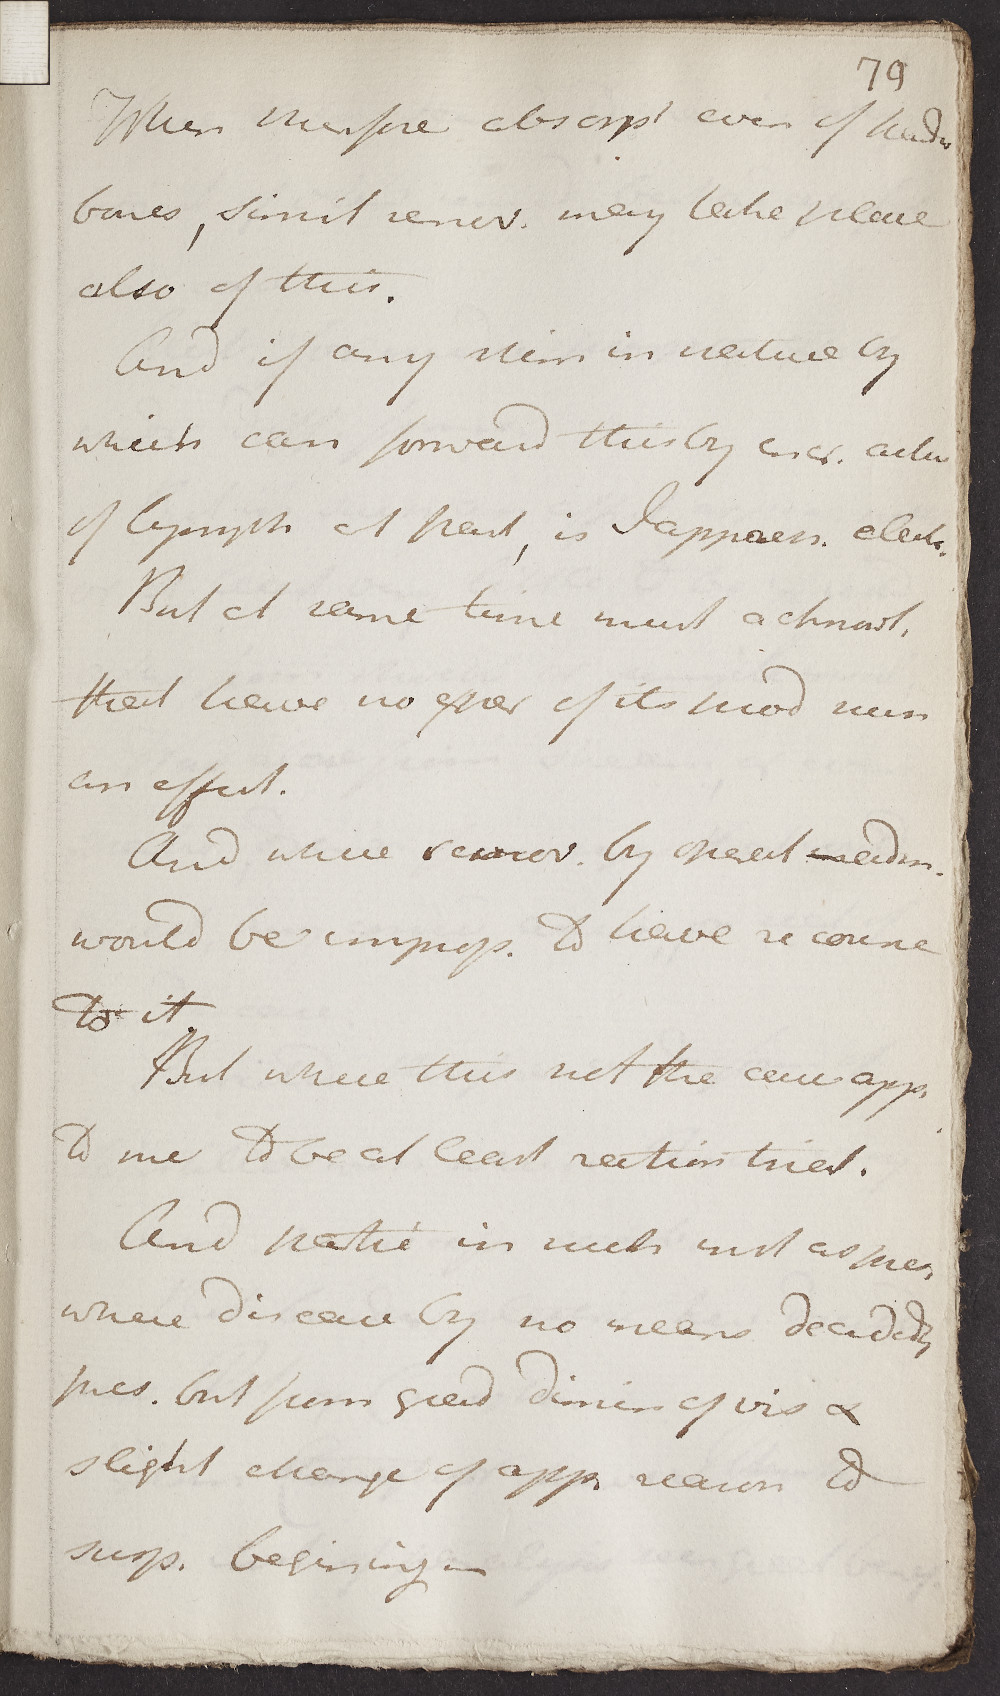 79
When therefore absorpt even of hardr
bones, simil remov. may take place
also of this.
And if any stim in nature by
which can forward this by incr. action
of lymph at part, is I appreh. electr.
But at same time must acknowl.
that have no exper of its prod such
an effect.
And where remov. by operat admi.
would be improp. to have recourse
to it.
But where this not the case app.
to me to be at least ration trial.
And partic in such inst as pres.
where disease by no means decidedly
pres. but from grad dimin of vis &
slight change of app. reason to
susp. begining